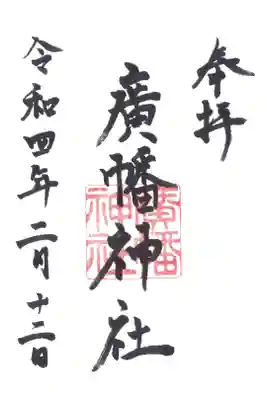 奉拝
廣幡神社
廣幡
神社
令和四年二月十二日